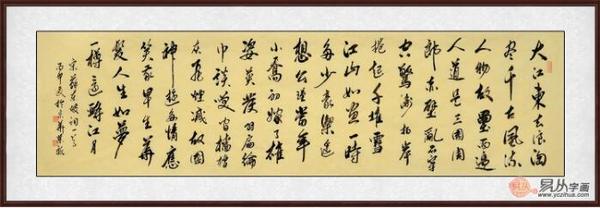 大江東去浪淘
盡千古風流
人物故壘西邊
人道是三國周
郎赤壁亂石穿
空驚濤拍岸
捲起千堆雪
江山如畫一時
多少豪傑遙
想公瑾當年
小喬初嫁了雄
姿英發羽扇綸
巾談笑間檣櫓
灰飛煙滅故國
神遊多情應
笑我早生華
髮人生如夢
一樽還酹江月
宋蘇東坡詞一首
丙申夏於京
易从字画
www.yczihua.com